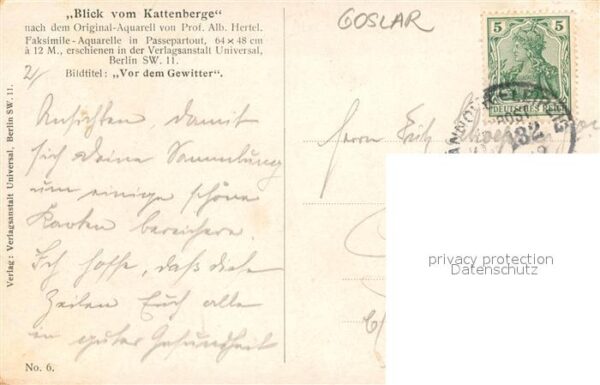 „Blick vom Kattenberge"
nach dem Original-Aquarell von Prof. Alb. Hertel.
Faksimile-Aquarelle in Passepartout, 64 × 48 cm
à 12 M., erschienen in der Verlagsanstalt Universal,
Berlin SW. 11.
Bildtitel: „Vor dem Gewitter".
2/
Ansichten, damit
sich deine Sammlung
um einige schöne
Karten bereichere.
Ich hoffe, daß diese
Zeilen Euch alle
in guter Gesundheit
No. 6.
Verlag: Verlagsanstalt Universal, Berlin SW. 11.
GOSLAR
5 5
DEUTSCHES REICH
132
Herrn Fritz
privacy protection
Datenschutz